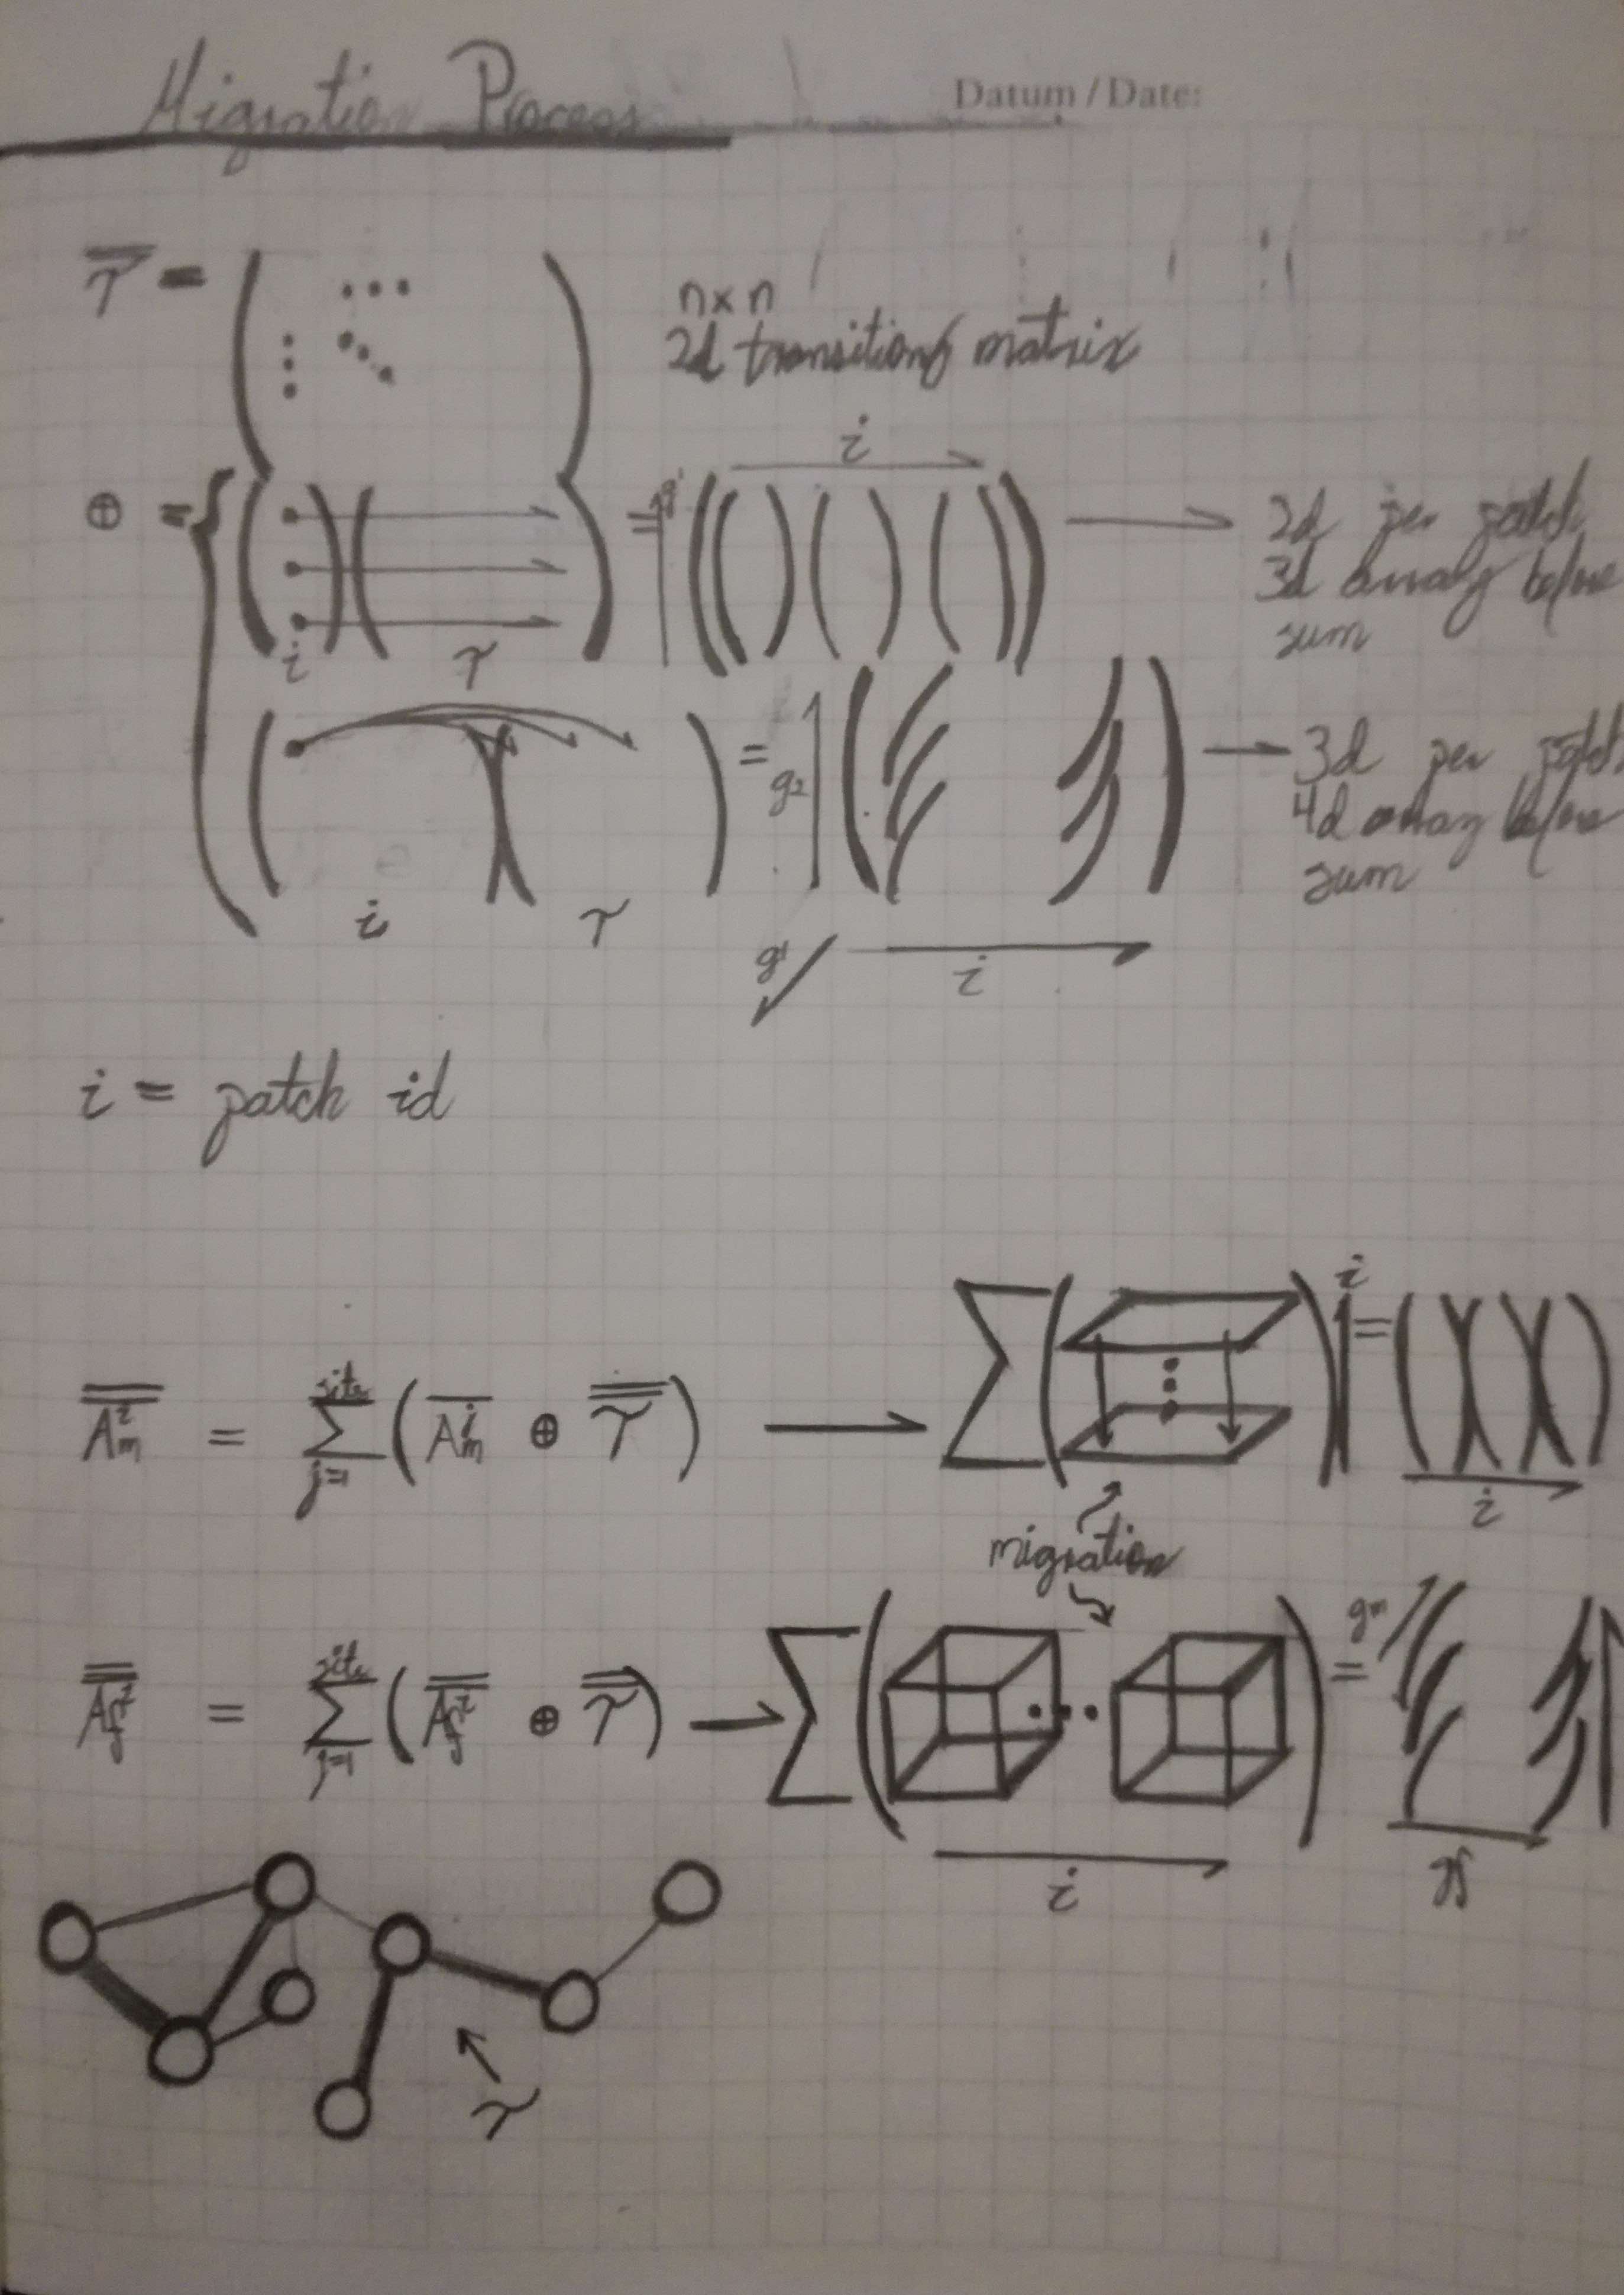 Migration Process
Datum / Date:
τ =
n x n
2d transitions matrix
i
⊕ = {
i τ
= g1
2d per patch
3d array before
sum
= g2
3d per patch
4d array before
sum
i τ
g1
i
i = patch id
A_m^i = Σ_{j=1} ( A_m^j ⊕ τ ) → Σ ( ) i = ( )
i
migration
A_f^i = Σ_{j=1} ( A_f^i ⊕ τ ) → Σ ( ... ) = gm
i
τ